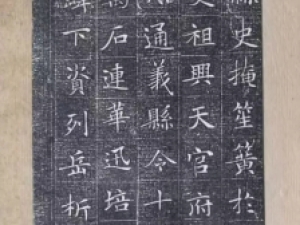 史掩笙簧於
祖興天官府
通義縣令十
石連華迅培
下資列岳析